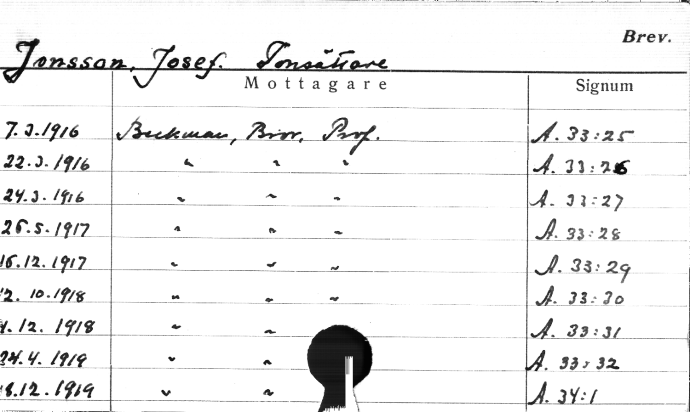 Brev.
Jonsson, Josef. Tonsättare
Mottagare Signum
7.3.1916 Beckman, Bror, Prof. A. 33:25
22.3.1916 " " " A. 33:26
24.3.1916 " " " A. 33:27
26.5.1917 " " " A. 33:28
16.12.1917 " " " A. 33:29
2.10.1918 " " " A. 33:30
12.1918 " " A. 33:31
24.4.1919 " " A. 33:32
8.12.1919 " " A. 34:1